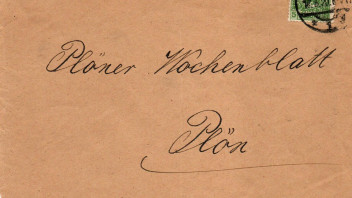 Plöner Wochenblatt
Plön